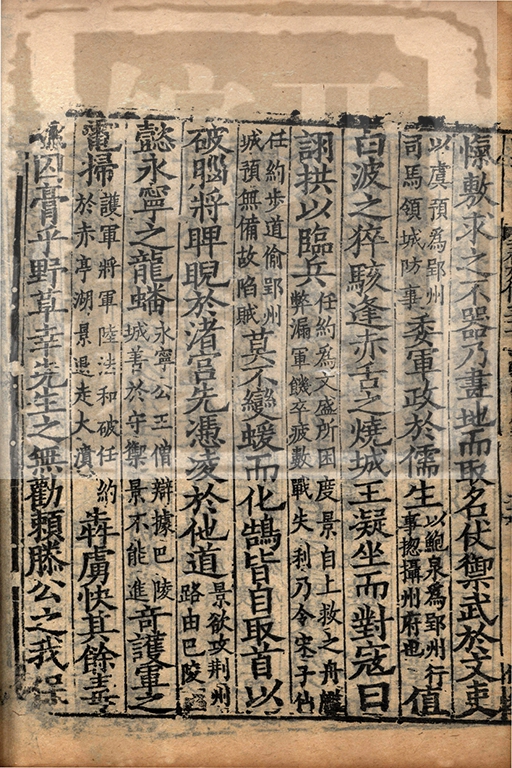 懍敷求之不器乃畫地而取名仗禦武於文吏
以虞預為郢州
司馬領城防事
委軍政於儒生
以鮑泉為郢州行
事揔攝州府也
值
白波之猝駭逢赤舌之燒城王凝坐而對寇曰
詡拱以臨兵
任約為文盛所困度景自上救之舟艦
弊漏軍饑卒疲數戰失利乃令宋子仙
任約步道偷郢州
城預無備故陷賊
莫不變蝯而化鵠皆自取首以
破腦將睥睨於渚宮先憑凌於他道
景欲攻荊州
路由巴陵
懿永寧之龍蟠
永寧公王僧辯據巴陵
城善於守禦景不能進
奇護軍之
電掃
護軍將軍陸法和破任約
於赤亭湖景退走大潰
犇虜快其餘毒
囚膏乎野草幸先生之無勸賴滕公之我保